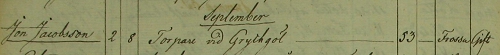 September
Jon Jacobsson 2 8 Torpare vid Grythyöl 53 Frossa Gift